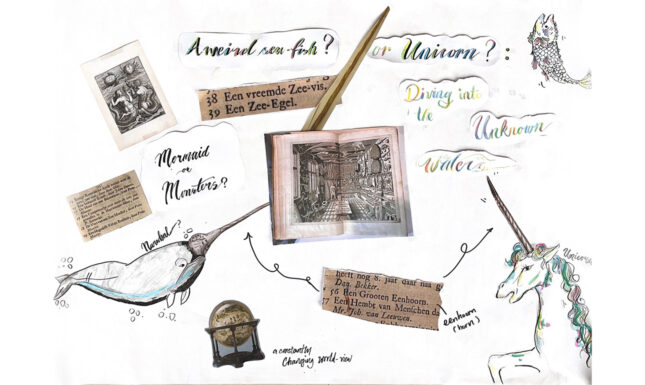 A weird sea-fish? or Unicorn? :
38 Een vreemde Zee-vis.
39 Een Zee-Egel.
Diving into
the
Unknown
waters
Mermaid
or
Monsters?
Narwhal?
heeft nog 8. jaar daar na g
Dag. Bekker.
56 Een Grooten Eenhoorn.
57 Een Hembt van Menschen da
Mr. Joh. van Leeuwen.
eenhoorn
(horn)
Unicorn
a constantly
Changing world-view